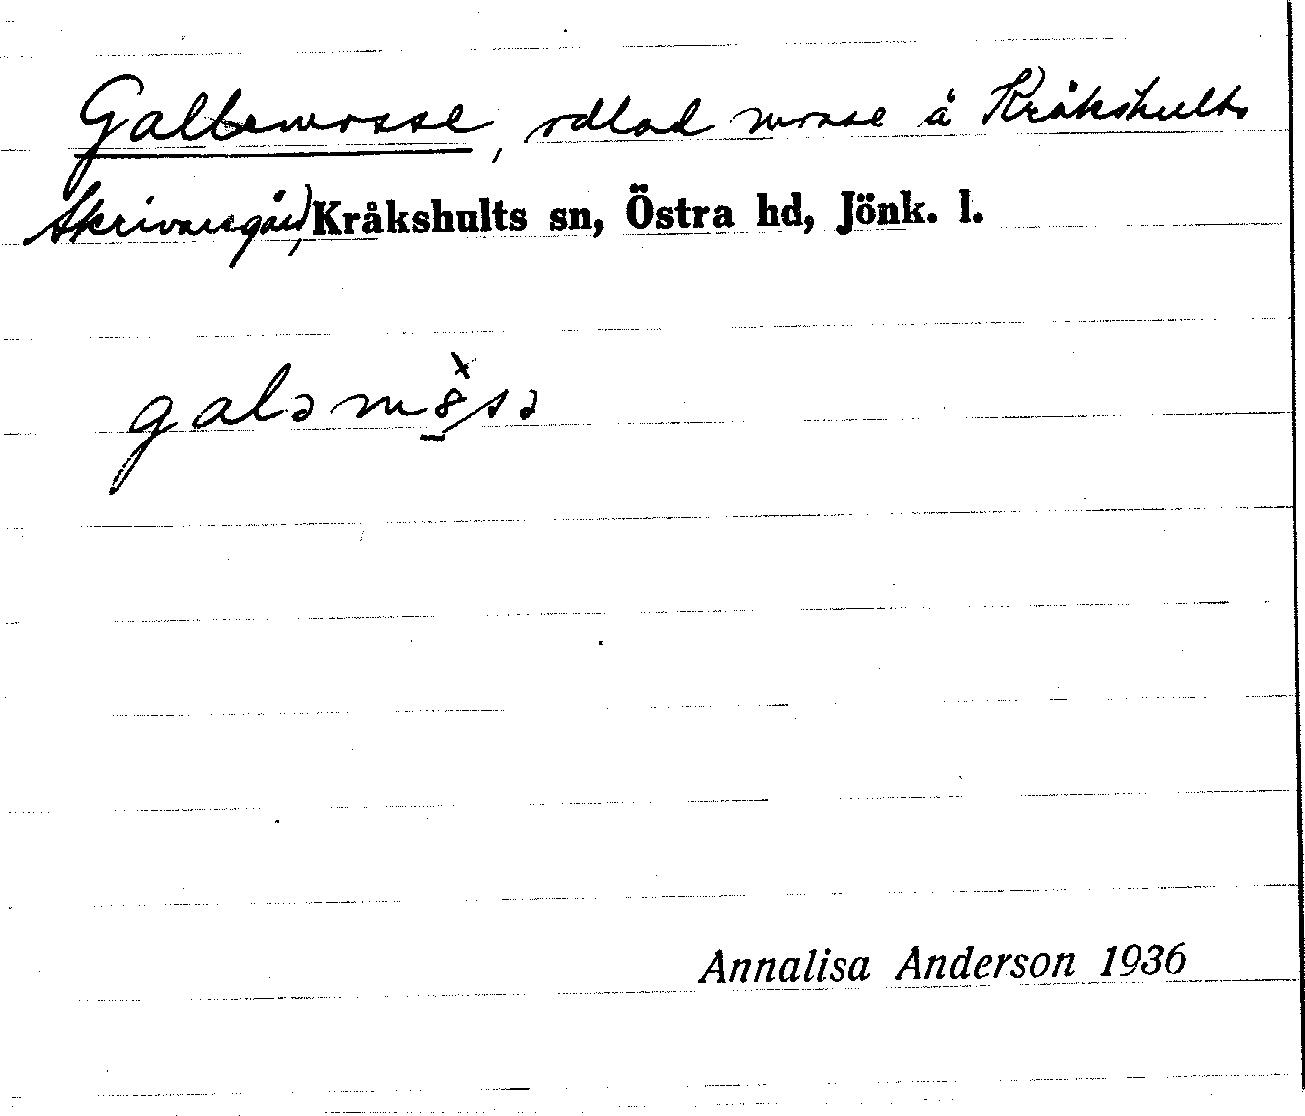 Gallemosse, odlad mosse å Kråkshults
Skrivaregård, Kråkshults sn, Östra hd, Jönk. l.
galəm8̲sə
Annalisa Anderson 1936